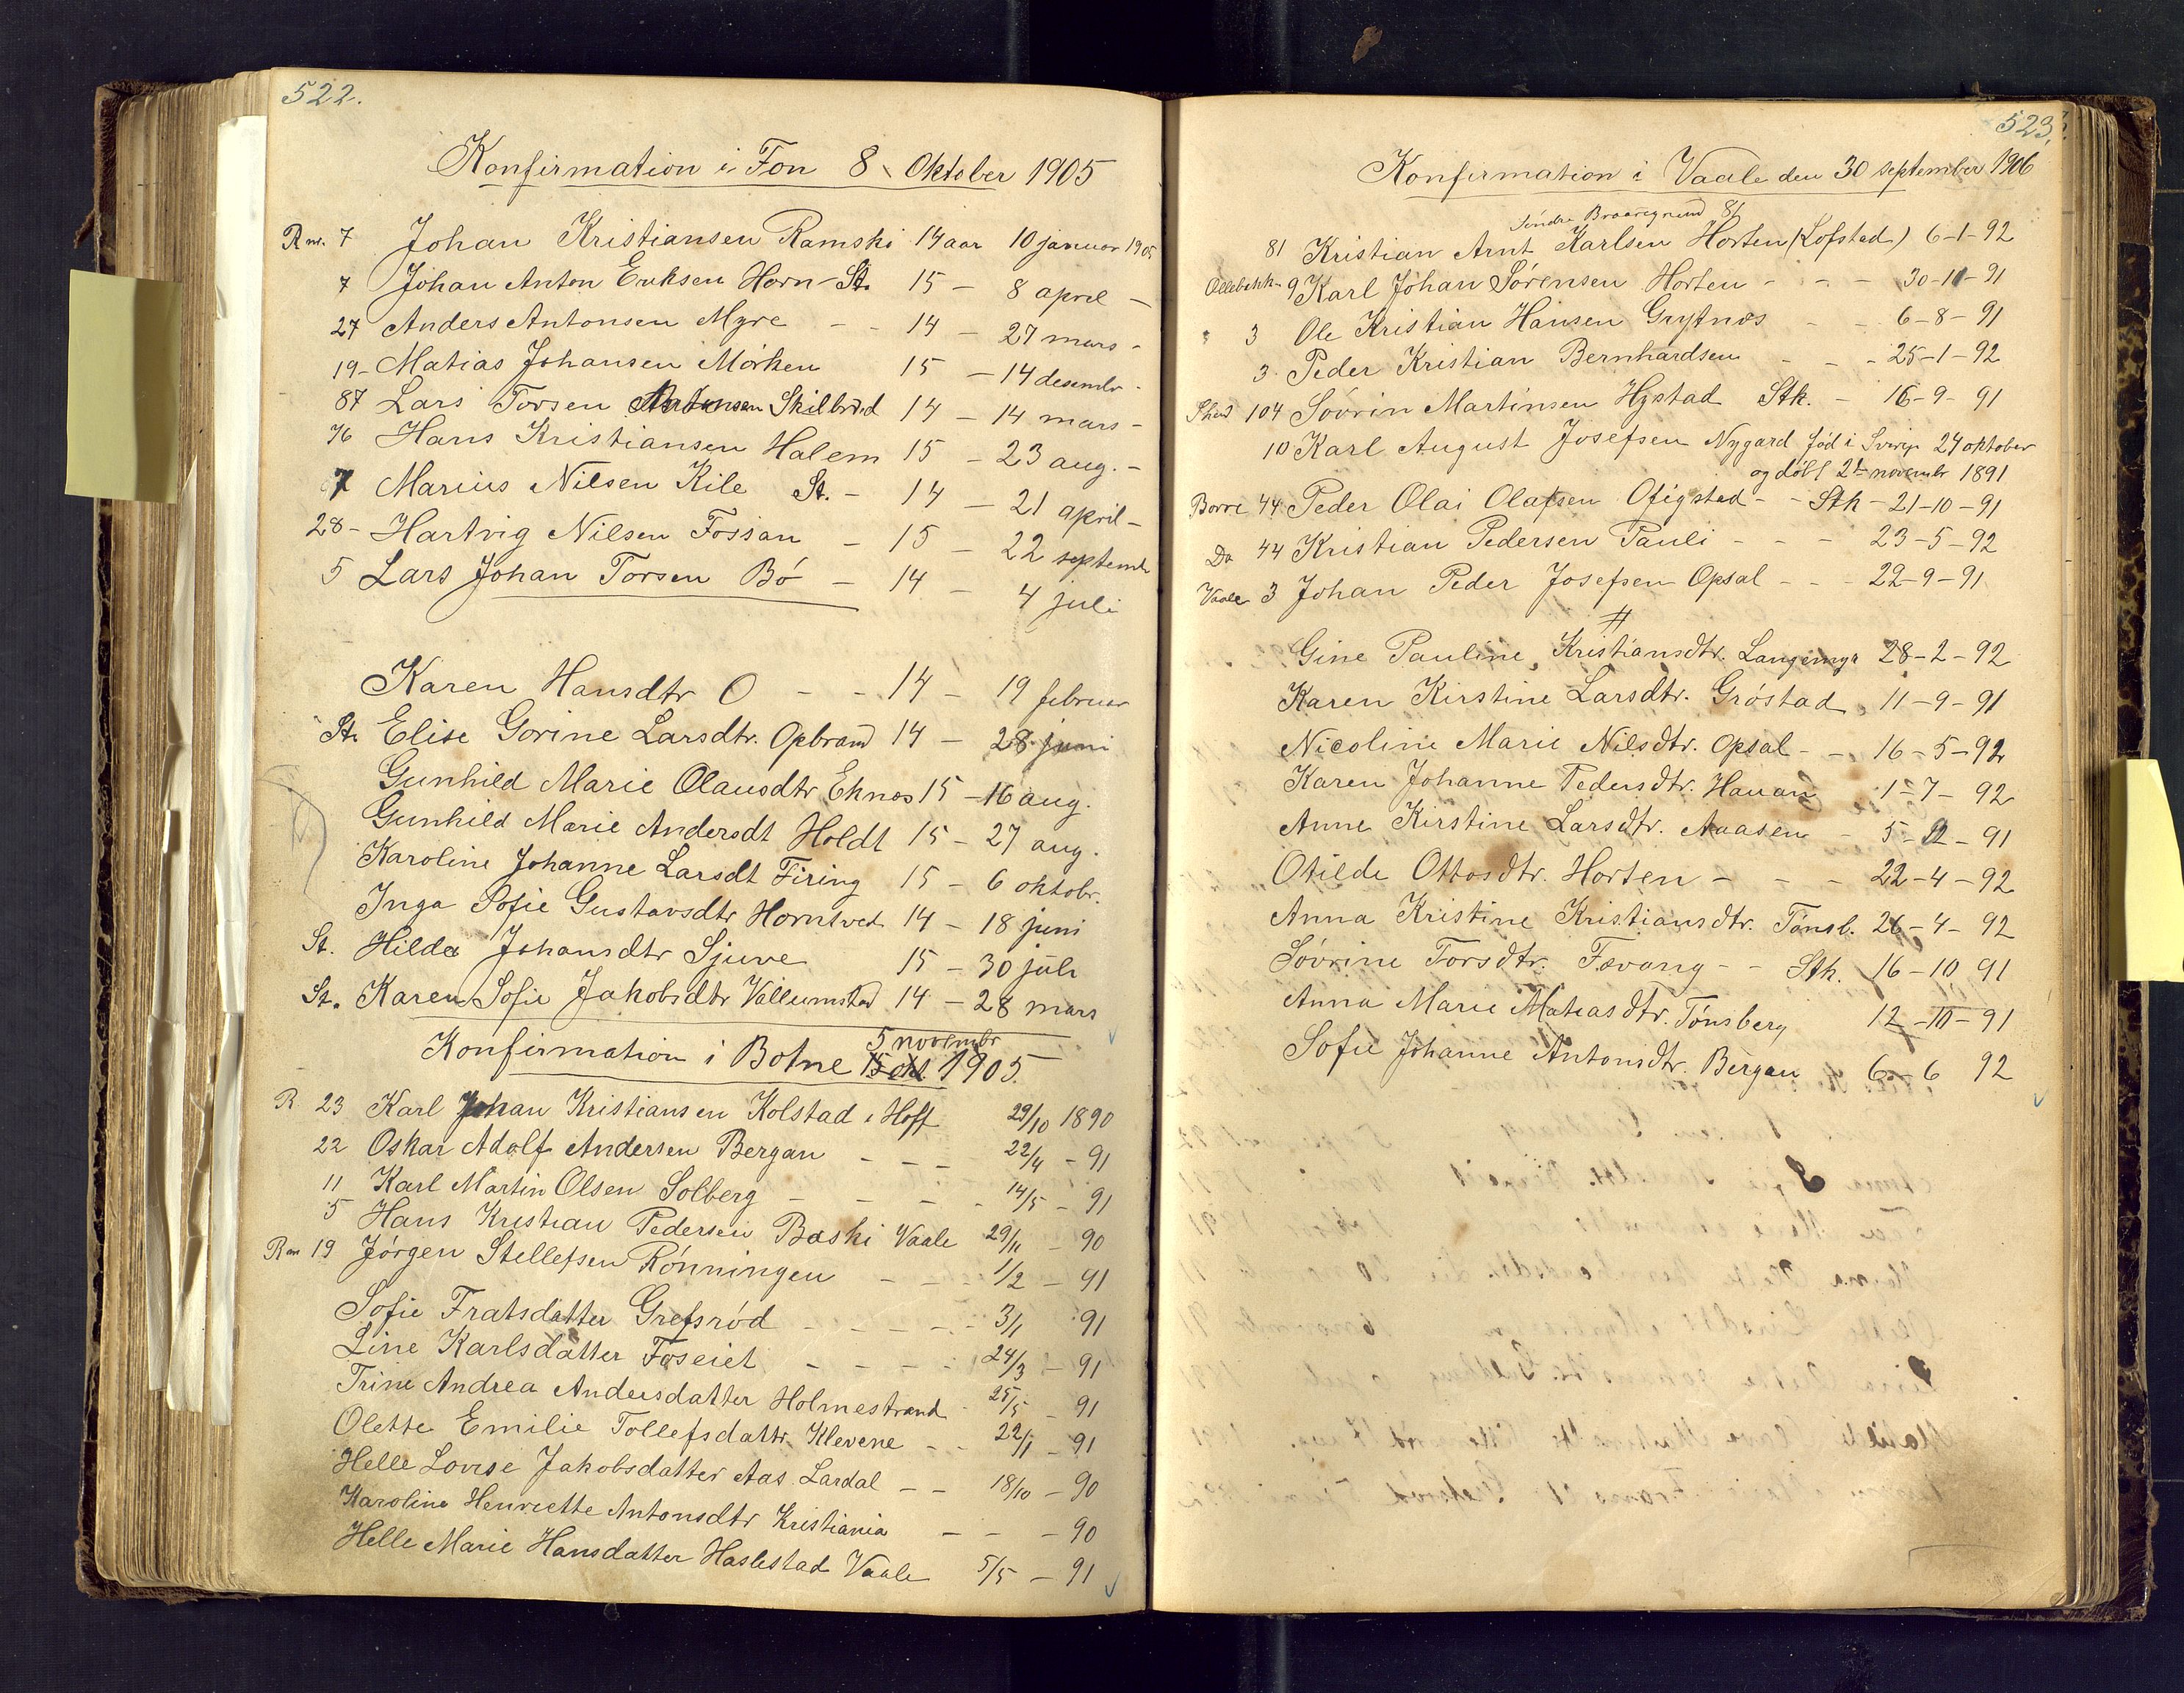 522.
Konfirmation i Fon 8 Oktober 1905
7 Johan Kristiansen Ramski 14 aar 10 januar 1905
7 Johan Anton Eriksen Horn St. 15 – 8 april –
27 Anders Antonsen Myre – – 14 – 27 mars –
19 – Matias Johansen Mörken 15 – 14 desembr –
87 Lars Torsen Skilbred 14 – 14 mars –
76 Hans Kristiansen Halem 15 – 23 aug. –
7 Marius Nilsen Kile St. – 14 – 21 april –
28 – Hartvig Nilsen Fossan – 15 – 22 septembr
5 Lars Johan Torsen Bö – 14 – 4 juli
Karen Hansdtr O – – 14 – 19 februar
St. Elise Gorine Larsdtr. Opbrand 14 – 28 juni
Gunhild Marie Olausdtr Eknes 15 – 16 aug.
Gunhild Marie Andersdt Holdt 15 – 27 aug.
Karoline Johanne Larsdt Firing 15 – 6 oktobr.
Inga Sofie Gustavsdtr Horntvedt 14 – 18 juni
St. Hilda Johansdtr Sjuve 15 – 30 juli
St. Karen Sofie Jakobsdtr Vallumstad 14 – 28 mars
5 novembr
Konfirmation i Botne 15 okt. 1905.
R 23 Karl Johan Kristiansen Kolstad i Hoff 29/10 1890
22 Oskar Adolf Andersen Bergan – – – 22/4 – 91
11 Karl Martin Olsen Solberg – – – 14/5 – 91
5 Hans Kristian Pedersen Baski Vaale 29/11 – 90
19 Jörgen Stellefsen Rönningen – – 1/2 – 91
Sofie Fratsdatter Grefsröd – – – – 3/1 91
Line Karlsdatter Foseiet – – – – 24/3 – 91
Trine Andrea Andersdatter Holmestrand 25/5 – 91
Olette Emilie Tollefsdattr. Klevene – – 22/1 – 91
Helle Lovise Jakobsdatter Aas Lardal – – 18/10 – 90
Karoline Henriette Antonsdtr Kristiania – – – 90
Helle Marie Hansdatter Haslestad Vaale 5/5 – 91
523.
Konfirmation i Vaale den 30 september 1906
Söndre 86
81 Kristian Arnt Karlsen Horten (Lofstad) 6-1-92
9 Karl Johan Sörensen Horten – – – 30-11-91
" 3 Ole Kristian Hansen Grytnes – – 6-8-91
3. Peder Kristian Bernhardsen – – – 25-1-92
104 Sövrin Martinsen Hystad Stk. – 16-9-91
10 Karl August Josefsen Nygard föd i Sverige 24 oktober
og döbt 21 novembr 1891
Borre 44 Peder Olai Olafsen Ofigstad – – Stk – 21-10-91
Do 44 Kristian Pedersen Pauli – – – 23-5-92
Vaale 3 Johan Peder Josefsen Opsal – – – 29-9-91
#
Gine Pauline Kristiansdtr. Langemyr 28-2-92
Karen Kirstine Larsdtr. Gröstad 11-9-91
Nicoline Marie Nilsdtr. Opsal – – 16-5-92
Karen Johanne Pedersdtr. Hauan 1-7-92
Anne Kirstine Larsdtr. Aaasen – 5-12-91
Otilde Ottosdtr. Horten – – – 22-4-92
Anna Kristine Kristiansdtr. Tönsb. 26-4-92
Sövrine Torsdtr. Fevang – – Stk. 16-10 91
Anna Marie Matiasdtr. Tönsberg 12-10-91
Sofie Johanne Antonsdtr. Bergan 6-6 92